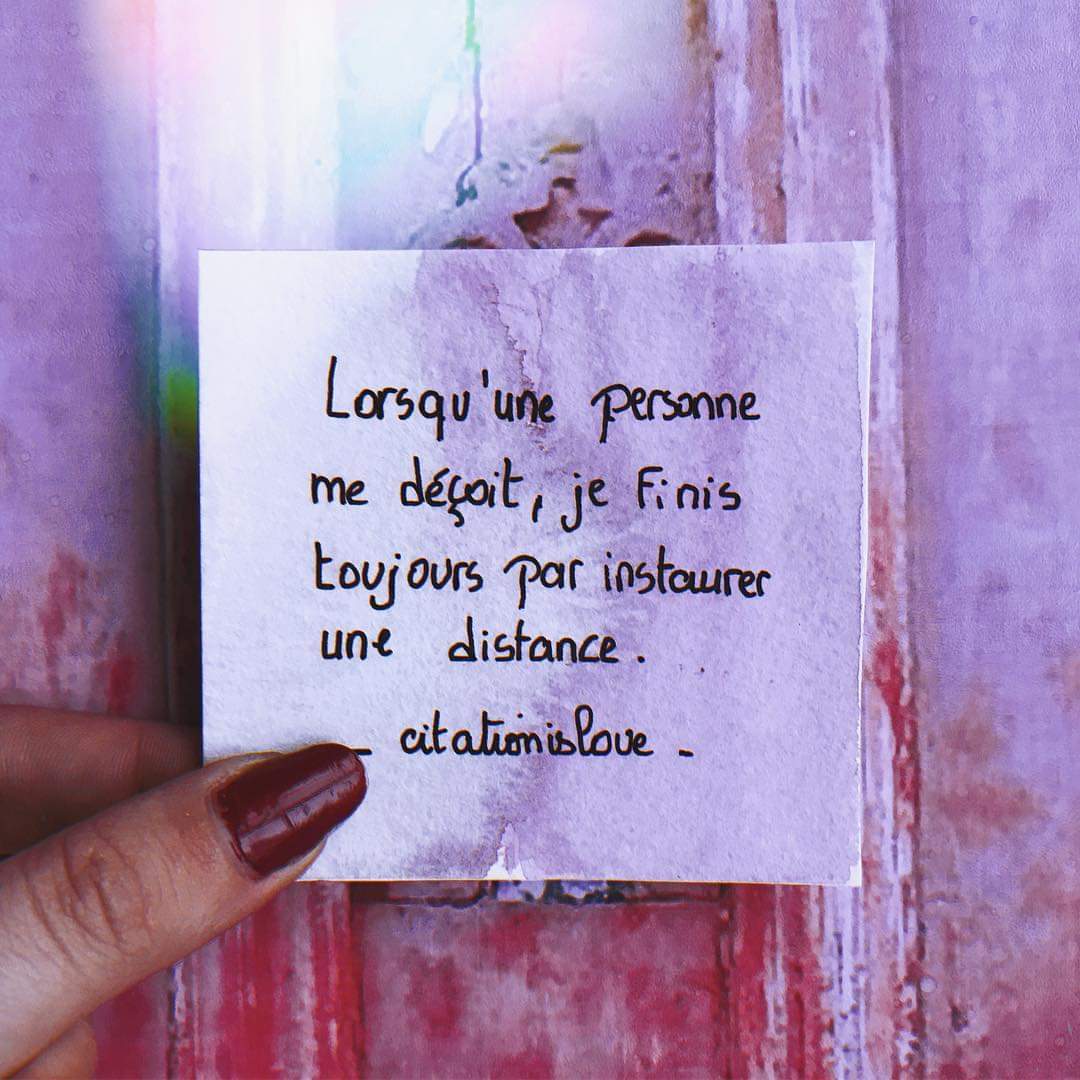 Lorsqu'une personne
me déçoit, je finis
toujours par instaurer
une distance.
_ citationislove _